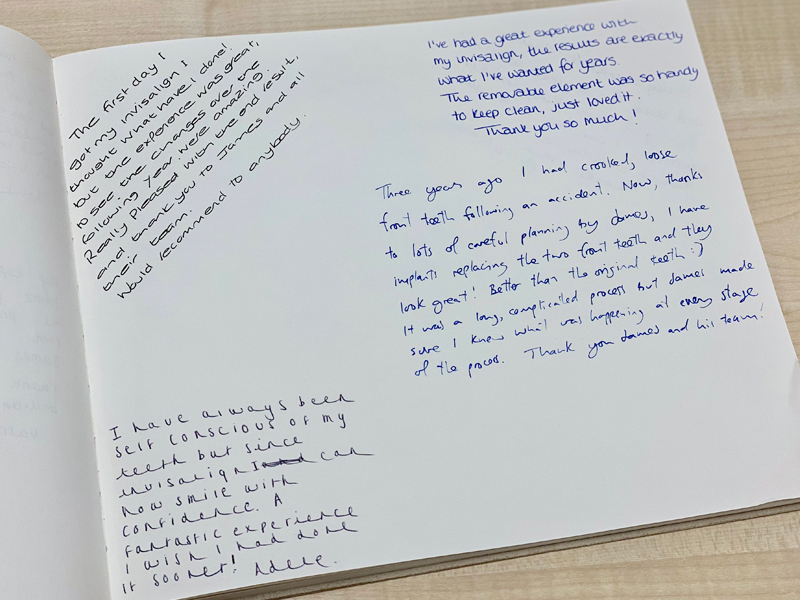 The first day I
got my invisalign I
thought what have i done!
but the experience was great,
to see the changes over the
following year were amazing.
Really pleased with the end result,
and thank you to James and all
their team.
Would recommend to anybody.
I've had a great experience with
my invisalign, the results are exactly
what I've wanted for years.
The removable element was so handy
to keep clean, just loved it.
Thank you so much!
Three years ago I had crooked, loose
front teeth following an accident. Now, thanks
to lots of careful planning by James, I have
implants replacing the two front teeth and they
look great! Better than the original teeth :)
It was a long, complicated process but James made
sure I knew what was happening at every stage
of the process. Thank you James and his team!
I have always been
self conscious of my
teeth but since
invisalign I can
now smile with
confidence. A
fantastic experience
I wish I had done
it sooner! Adele.